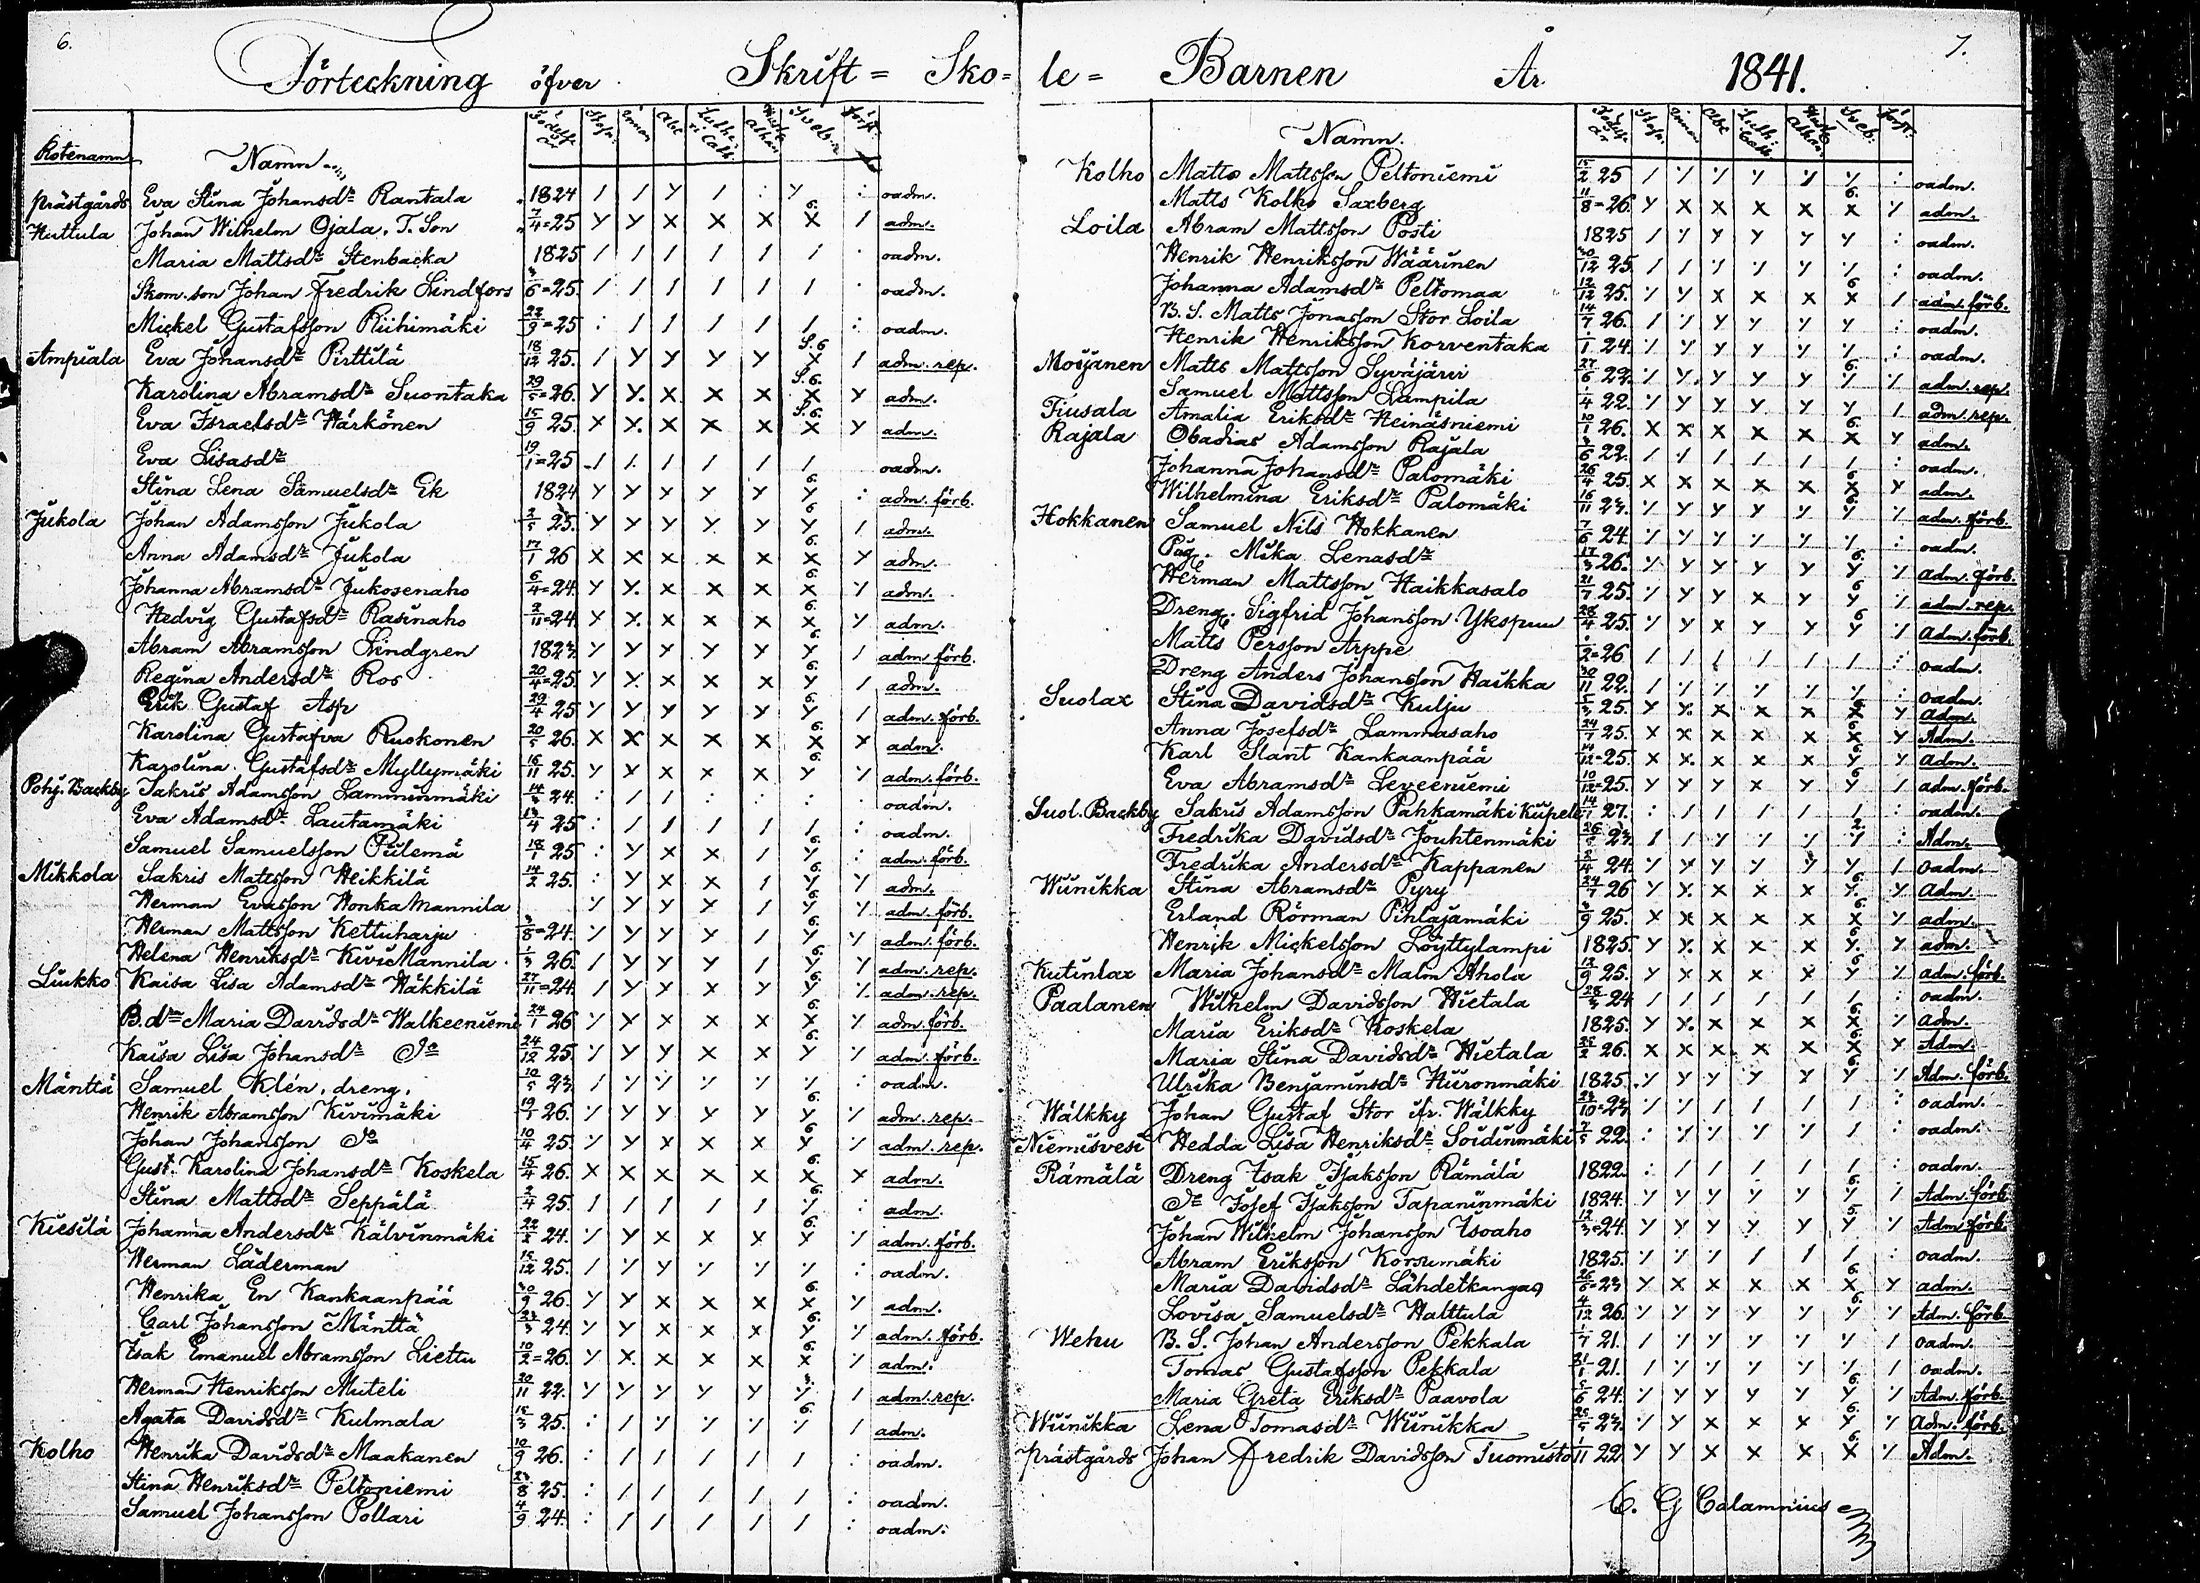 6.
Förteckning öfver Skrift = Sko=
Rotenamn Namn Födelse år Staf. Innan Abc Luth: Cath. Sveb. Först.
prästgårds Eva Stina Johansdr Rantala 1824 / / y / : y : oadm.
Huttula Johan Wilhelm Ojala, T. Son 7/4=25 y y x x x x / adm.
Maria Mattsdr Stenbacka 1825 / / / / / / : oadm.
Skom. son Johan Fredrik Lindfors 3/6=25. / / / / / / : oadm.
Mickel Gustafsson Riihimäki 22/9=25 : / / / / / : oadm.
Ampiala Eva Johansdr Pirttilä 18/12 25. / y y y y x / adm. rep.
Karolina Abramsdr Suontaka 29/5=26. y y. x x x x y adm.
Eva Israelsdr Härkönen 15/9 25. x x. x x x x y adm.
Eva Lisasdr 19/1=25 / / / / / / oadm.
Stina Lena Samuelsdr Ek 1824 y y y y y y : adm. förb.
Jukola Johan Adamsson Jukola 2/5 25. y y y y y y / adm.
Anna Adamsdr Jukola 17/1 26 x x x x x x y adm.
Johanna Abramsdr Jukosenaho 6/4=24. y y. x x x x y adm.
Hedvig Gustafsdr Rasinaho 2/11=24. y x. x x x x y adm.
Abram Abramsson Lindgren 1823. y y y y y y / adm förb.
Regina Andersdr Ros 20/4=25. y y. x x x y / adm.
Erik Gustaf Asp 29/4 25 y y y y y y / adm. förb.
Karolina Gustafva Ruokonen 20/5 26. x x x x x x x adm.
Karolina Gustafsdr Myllymäki 16/11 25. y y x x x y y adm. förb.
Pohj. Backby Sakris Adamsson Lamminmäki 14/3 24. : / / : : : : oadm.
Eva Adamsdr Lautamäki 13/4 25 : / / / / / : oadm.
Samuel Samuelsson Piilemä 18/1 25 : y x x / y : adm. förb.
Mikkola Sakris Mattsson Heikkilä 14/2 25. : y x x / y y adm.
Herman Evasson Honka Mannila y y y y / y y adm. förb.
Herman Mattsson Kettuharju 3/8=24. y y y y / y y adm. förb.
Helena Henriksdr Kivi Mannila 1/3 26. / y y y / y y adm. rep.
Liukko Kaisa Lisa Adamsdr Häkkilä 27/11=24. / y y x y y y adm. rep.
B.dr Maria Davidsdr Walkeeniemi 24/1 26 y y x x x x y adm. förb.
Kaisa Lisa Johansdr do 24/12 25. y y y x x y y adm. förb.
Mänttä Samuel Klén, dreng. 10/5 23. / y y y y y : oadm.
Henrik Abramsson Kivimäki 19/1 26. y y y y y y y adm. rep.
Johan Johansson do 10/4 25. y y x x x y y adm. rep.
Gust. Karolina Johansdr Koskela 15/4 26. x x x x x x x adm.
Stina Mattsdr Seppälä 2/4 25. / / / / / y : adm.
Kiesilä Johanna Andersdr Kälvinmäki 22/2 24. y y x x x y y adm. förb.
Herman Läderman 15/12 25. / y y y y y : oadm.
Henrika En Kankaanpää 30/9 26. y y x x x x y adm.
Carl Johansson Mänttä 23/3 24. y y x x x y y adm. förb.
Isak Emanuel Abramsson Liettu 10/2=26. y x. x x x x y adm.
Herman Henriksson Muteli 20/11 22. y y y y y y / adm. rep.
Agata Davidsdr Kulmala 15/3 25. : / y y y y / adm.
Kolho Henrika Davidsdr Maakanen 10/9 26. : / / / / / : oadm.
Stina Henriksdr Peltoniemi 23/8 25. : / / / / / : oadm.
Samuel Johansson Pollari 4/9 24. : / / / / / : oadm.
7.
le = Barnen År 1841.
Namn. Födelse år Staf. Innan Abc Luth: Cath. Sveb. Först.
Kolho Matts Mattsson Peltoniemi 15/2 25 / y y y y y : oadm.
Matts Kolho Saxberg 11/8=26. y x x x x x y adm.
Loila Abram Mattsson Posti 1825 / y y y y y : oadm.
Henrik Henriksson Wäärinen 30/12 25. / / y y y y : oadm.
Johanna Adamsdr Peltomaa 12/12 25. y y x x x x / adm. förb.
B. S. Matts Jonasson Stor Loila 14/7 26. / y y y y y : oadm.
Henrik Henriksson Korventaka 1/1 24. y y y y y y : oadm.
Mosjanen Matts Mattsson Syväjärvi 27/6 22. y y. y y y y y adm. rep.
Samuel Mattsson Lampila 1/4 22. y y y y y y / adm. rep.
Tiusala Amalia Eriksdr Heinäsniemi 10/1 26. x x x x x x y adm.
Rajala Obadias Adamsson Rajala 3/6 22. / y / / / / : oadm.
Johanna Johansdr Palomäki 26/4 25. x x x x x x y adm.
Wilhelmina Eriksdr Palomäki 16/11 23. y y y y y y y adm. förb.
Hokkanen Samuel Nils Hokkanen 7/6 24. y y y y y y : oadm.
Pig. Mika Lenasdr 17/3 26. y y y y y y y adm. förb.
Herman Mattsson Haikkasalo 21/7 25. y y y x y y y adm. rep.
Dreng. Sigfrid Johansson Ykspuu 28/4 25. y y x y y y / adm. förb.
Matts Persson Arppe 1/2=26 / / / / / / : oadm.
Dreng Anders Johansson Haikka 30/11 22. / y y y y y : oadm.
Suolax Stina Davidsdr Kulju 5/3 25. y y. x x x x y adm.
Anna Josefsdr Lammasaho 24/7 25. x x x x x x y Adm.
Karl Slant Kankaanpää 14/12=25. x x. x x x y y Adm.
Eva Abramsdr Leveeniemi 10/12=25. y y y x y y / adm. förb.
Suol. Backby Sakris Adamsson Pahkamäki Kupele 14/7 27. : / / / / / : oadm.
Fredrika Davidsdr Jouhtenmäki 26/5 23. / / y y y y : Adm.
Fredrika Andersdr Kappanen 2/4 24. y y y y y y / oadm.
Wiinikka Stina Abramsdr Pyry 24/7 26 y y. x x x y. y Adm.
Erland Rörman Pihlajamäki 3/9 25. x x x x x x y adm.
Henrik Mickelsson Löyttylampi 1825. y y. x x x y. y adm.
Kutinlax Maria Johansdr Malm Ahola 13/9 25. y y x x x y y adm. förb.
Paalanen Wilhelm Davidsson Hietala 28/3 24 / / / / / / : oadm.
Maria Eriksdr Koskela 1825. y y. x x x x y adm.
Maria Stina Davidsdr Hietala 25/2 26. x x x. x x x y Adm.
Ulrika Benjaminsdr Hiironmäki 1825. y y y y y y y Adm. förb.
Wälkky Johan Gustaf Stor ifr. Wälkky 23/10=23. y y / / / / : oadm.
Niemisvesi Hedda Lisa Henriksdr Soidinmäki 7/5 22. : y y y y / : oadm.
Rämälä Dreng Isak Isaksson Rämälä 1822. : / / / / / : oadm.
do Josef Isaksson Tapaninmäki 1824. y y y y y y / Adm. förb.
Johan Wilhelm Johansson Isoaho 12/3=24. y y y y y y y Adm förb.
Abram Eriksson Korsumäki 1825. y y y / / / : oadm.
Maria Davidsdr Lähdetkangas 26/6=23 y x x x x x y adm.
Lovisa Samuelsdr Halttula 4/12 26. y y y y y y y Adm. förb.
Wehu B. S. Johan Andersson Pekkala 1/7 21. / y y y y y / oadm.
Tomas Gustafsson Pekkala 21/1 21. / y y y y y / oadm.
Maria Greta Eriksdr Paavola 5/6 24. y y y y y y y Adm. förb.
Wiinikka Lena Tomasdr Wiinikka 25/5 23. y y x x x y y adm. förb.
prästgårds Johan Fredrik Davidsson Tuomisto 1/11 22 y y x x x x y Adm.
C. G Calamnius